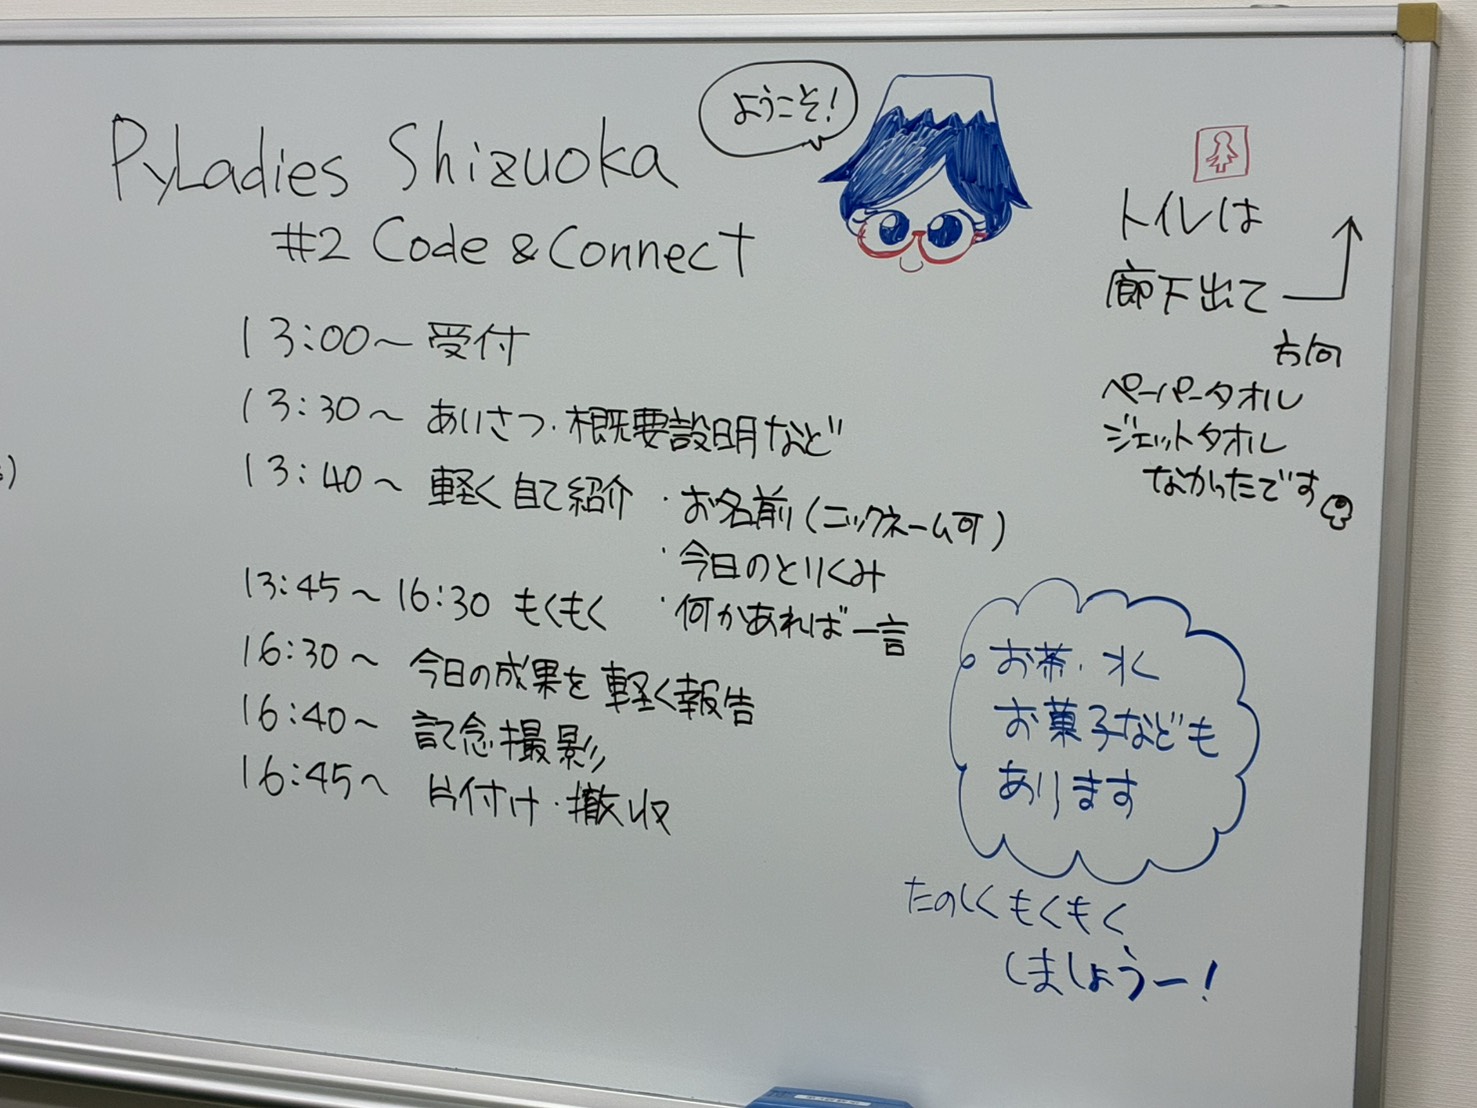 ようこそ!
PyLadies Shizuoka
#2 Code & Connect
13:00〜 受付
13:30〜 あいさつ・概要説明など
13:40〜 軽く自己紹介 ・お名前(ニックネーム可)
・今日のとりくみ
・何かあれば一言
13:45〜16:30 もくもく
16:30〜 今日の成果を軽く報告
16:40〜 記念撮影
16:45〜 片付け・撤収
トイレは
廊下出て
方向
ペーパータオル
ジェットタオル
なかったです
お茶・水
お菓子なども
あります
たのしくもくもく
しましょうー!